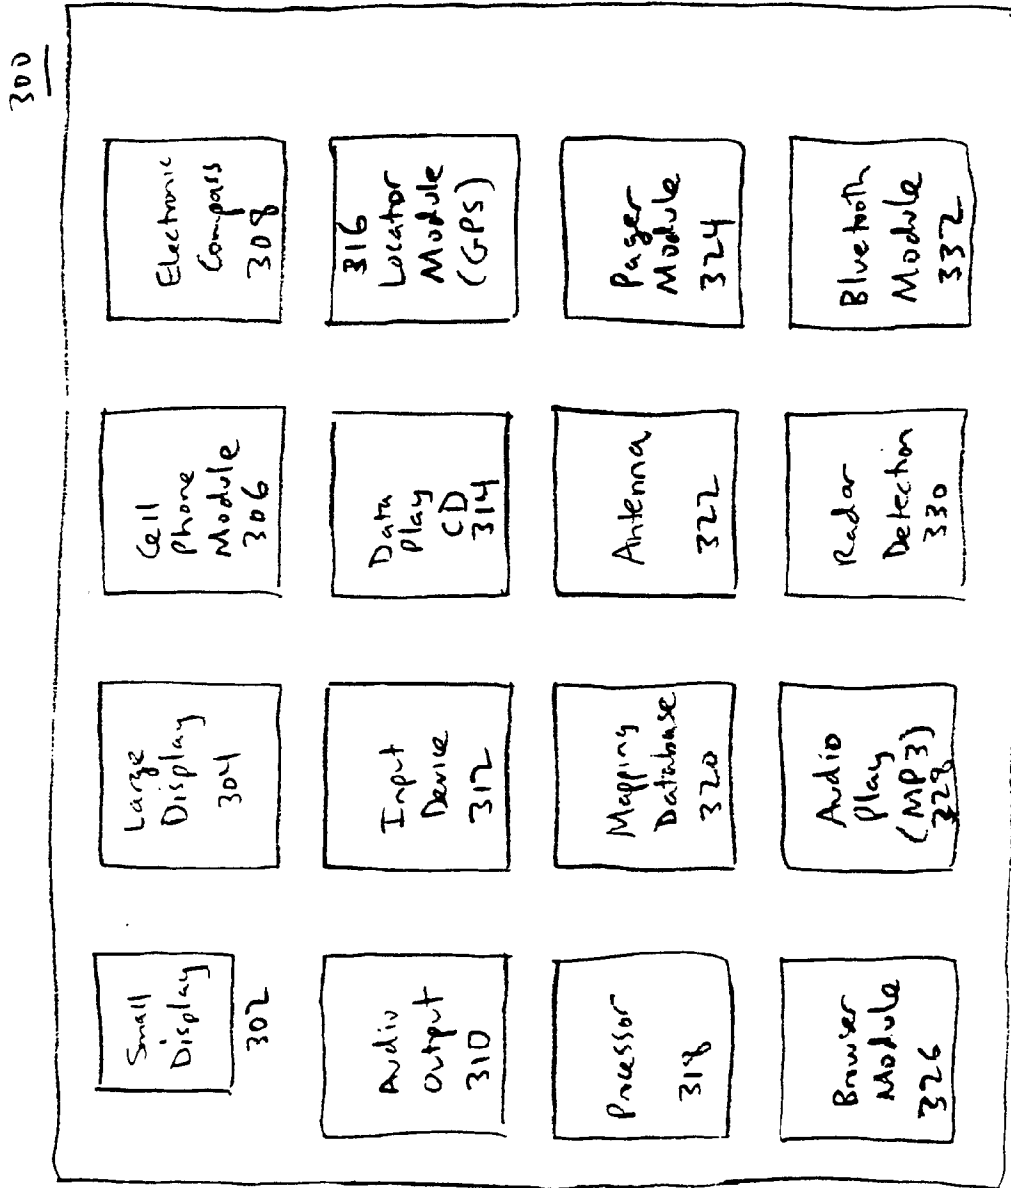 300
Small
Display
302
Large
Display
304
Cell
Phone
Module
306
Electronic
Compass
308
Audio
Output
310
Input
Device
312
Data
Play
CD
314
316
Locator
Module
(GPS)
Processor
318
Mapping
Database
320
Antenna
322
Pager
Module
324
Browser
Module
326
Audio
Play
(MP3)
328
Radar
Detection
330
Bluetooth
Module
332